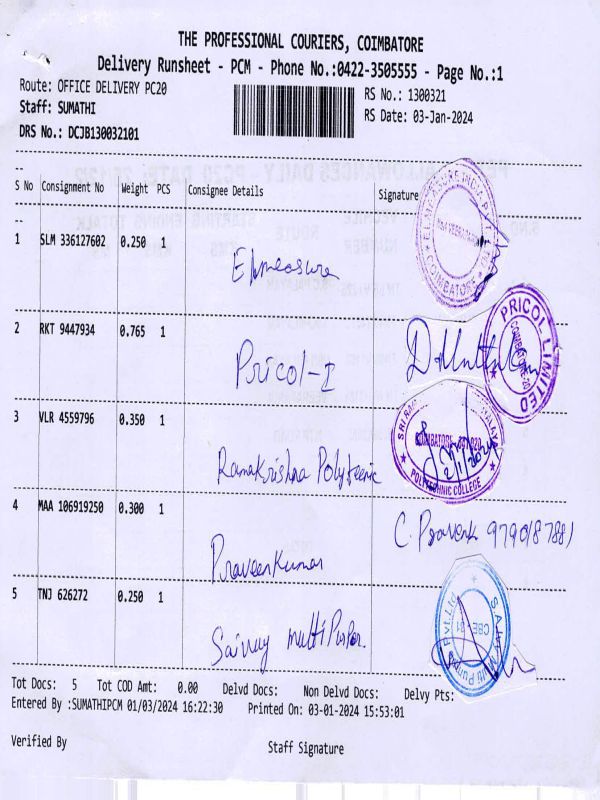 THE PROFESSIONAL COURIERS, COIMBATORE
Delivery Runsheet - PCM - Phone No.:0422-3505555 - Page No.:1
Route: OFFICE DELIVERY PC20
RS No.: 1300321
Staff: SUMATHI
RS Date: 03-Jan-2024
DRS No.: DCJB130032101
S No Consignment No Weight PCS Consignee Details Signature
1 SLM 336127602 0.250 1
Elmeasure
COIMBATORE
2 RKT 9447934 0.765 1
Pricol-I
PRICOL LIMITED
COIMBATORE-20
3 VLR 4559796 0.350 1
Ramakrishna Polyteenic
POLYTECHNIC COLLEGE
4 MAA 106919250 0.300 1
PraveenKumar
C. Praveenk
5 TNJ 626272 0.250 1
multi Purpor.
Pvt.Ltd
Tot Docs: 5 Tot COD Amt: 0.00 Delvd Docs: Non Delvd Docs: Delvy Pts:
Entered By :SUMATHIPCM 01/03/2024 16:22:30 Printed On: 03-01-2024 15:53:01
Verified By
Staff Signature